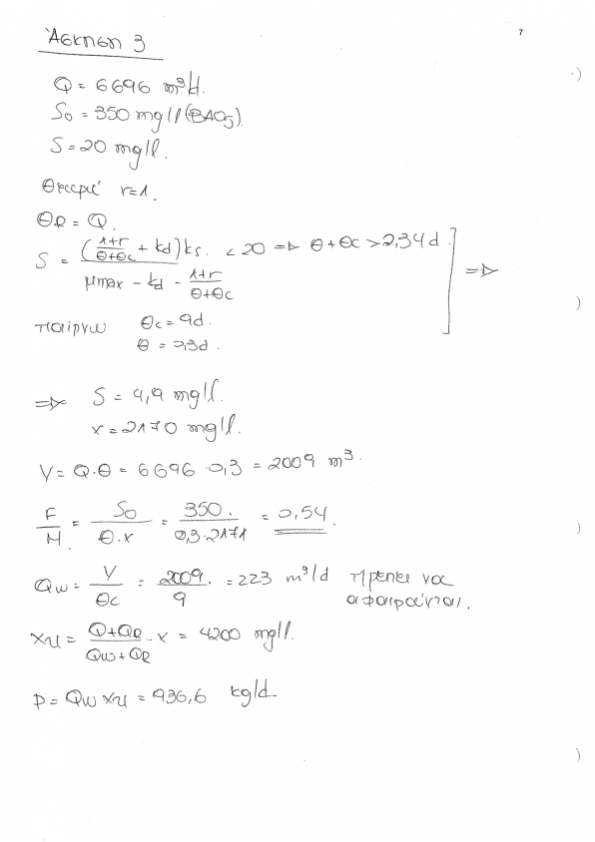 7
Άσκηση 3
Q = 6696 m³/d.
S₀ = 350 mg/l (BAO₅).
S = 20 mg/l.
Θεωρώ r=1.
QR = Q.
S = ((1+r)/(θ+θc) + kd)ks / (μmax - kd - (1+r)/(θ+θc)) < 20 ⇒ θ+θc > 2,34 d. ] ⇒
παίρνω θc = 9d.
θ = 0,3d.
⇒ S = 4,9 mg/l.
x = 2170 mg/l.
V = Q·θ = 6696 0,3 = 2009 m³.
F/M = S₀/(θ·x) = 350/(0,3·2171) = 0,54.
Qw = V/θc = 2009/9 = 223 m³/d πρέπει να
αφαιρούνται.
xu = (Q+QR)/(Qw+QR)·x = 4200 mg/l.
P = Qw xu = 936,6 kg/d.